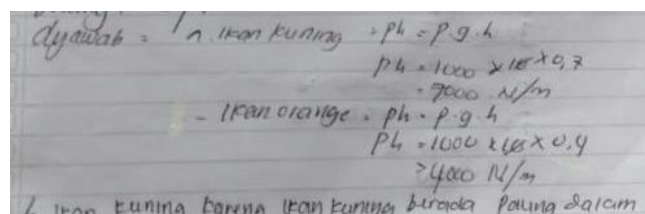 dijawab = 1 a. ikan kuning = ph = p.g.h
ph = 1000 x 10 x 0,7
= 7000 N/m
- Ikan orange = ph = p.g.h
ph = 1000 x 10 x 0,4
= 4000 N/m
b ikan kuning karena ikan kuning berada paling dalam